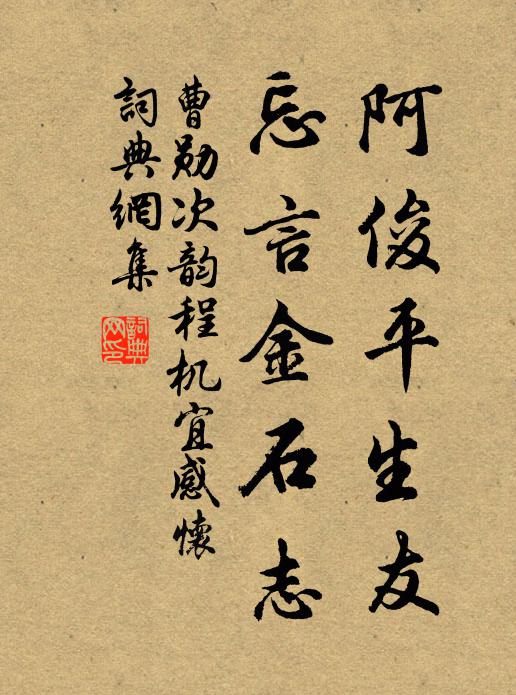 阿俊平生友
忘言金石志
曹勋次韵程机宜感懷
詞典網集
詞典
网印